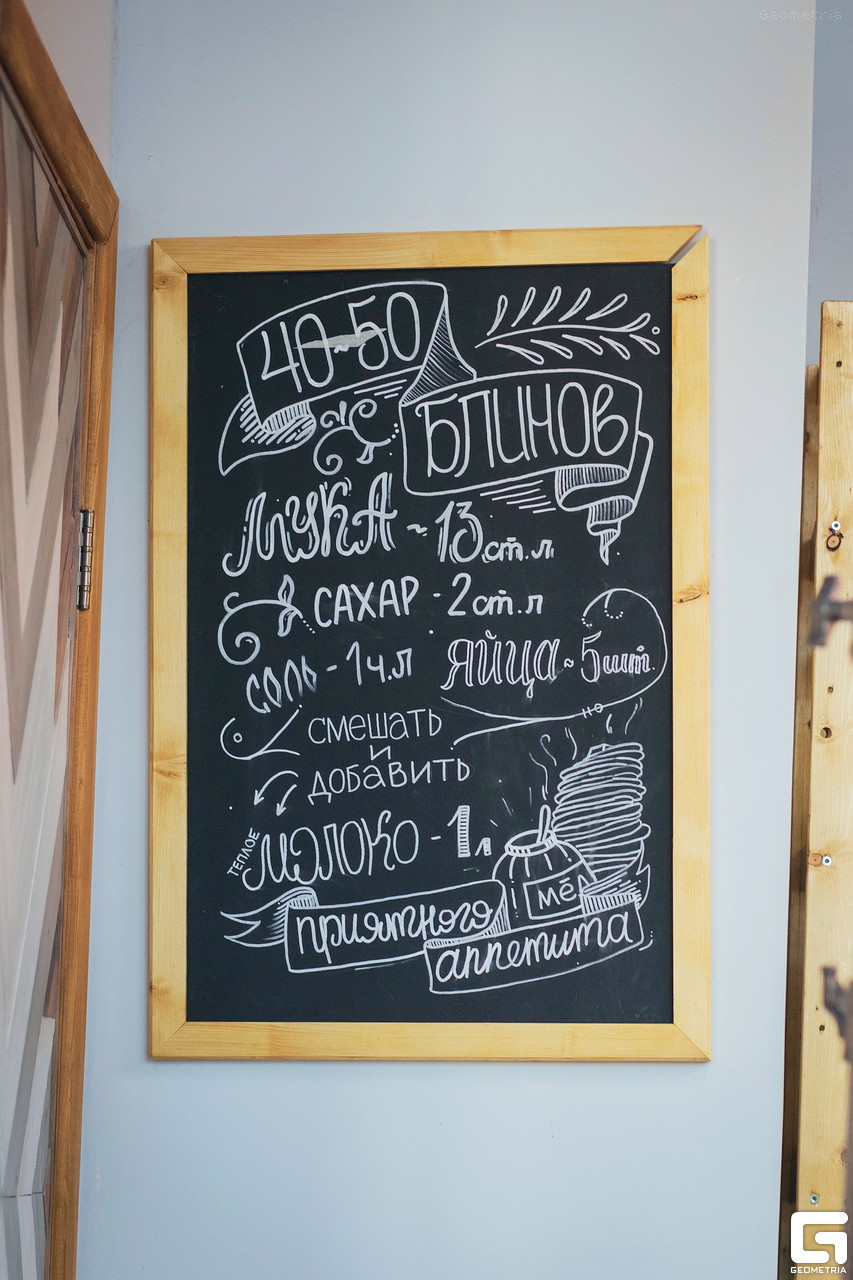 Geometria
40~50
БЛИНОВ
МУКА ~ 13 ст.л
САХАР - 2 ст.л
СОЛЬ - 1 ч.л
ЯЙЦА ~ 5 шт.
СМЕШАТЬ
И
ДОБАВИТЬ
ТЕПЛОЕ
МОЛОКО - 1 л
МЁ
приятного
аппетита
GEOMETRIA